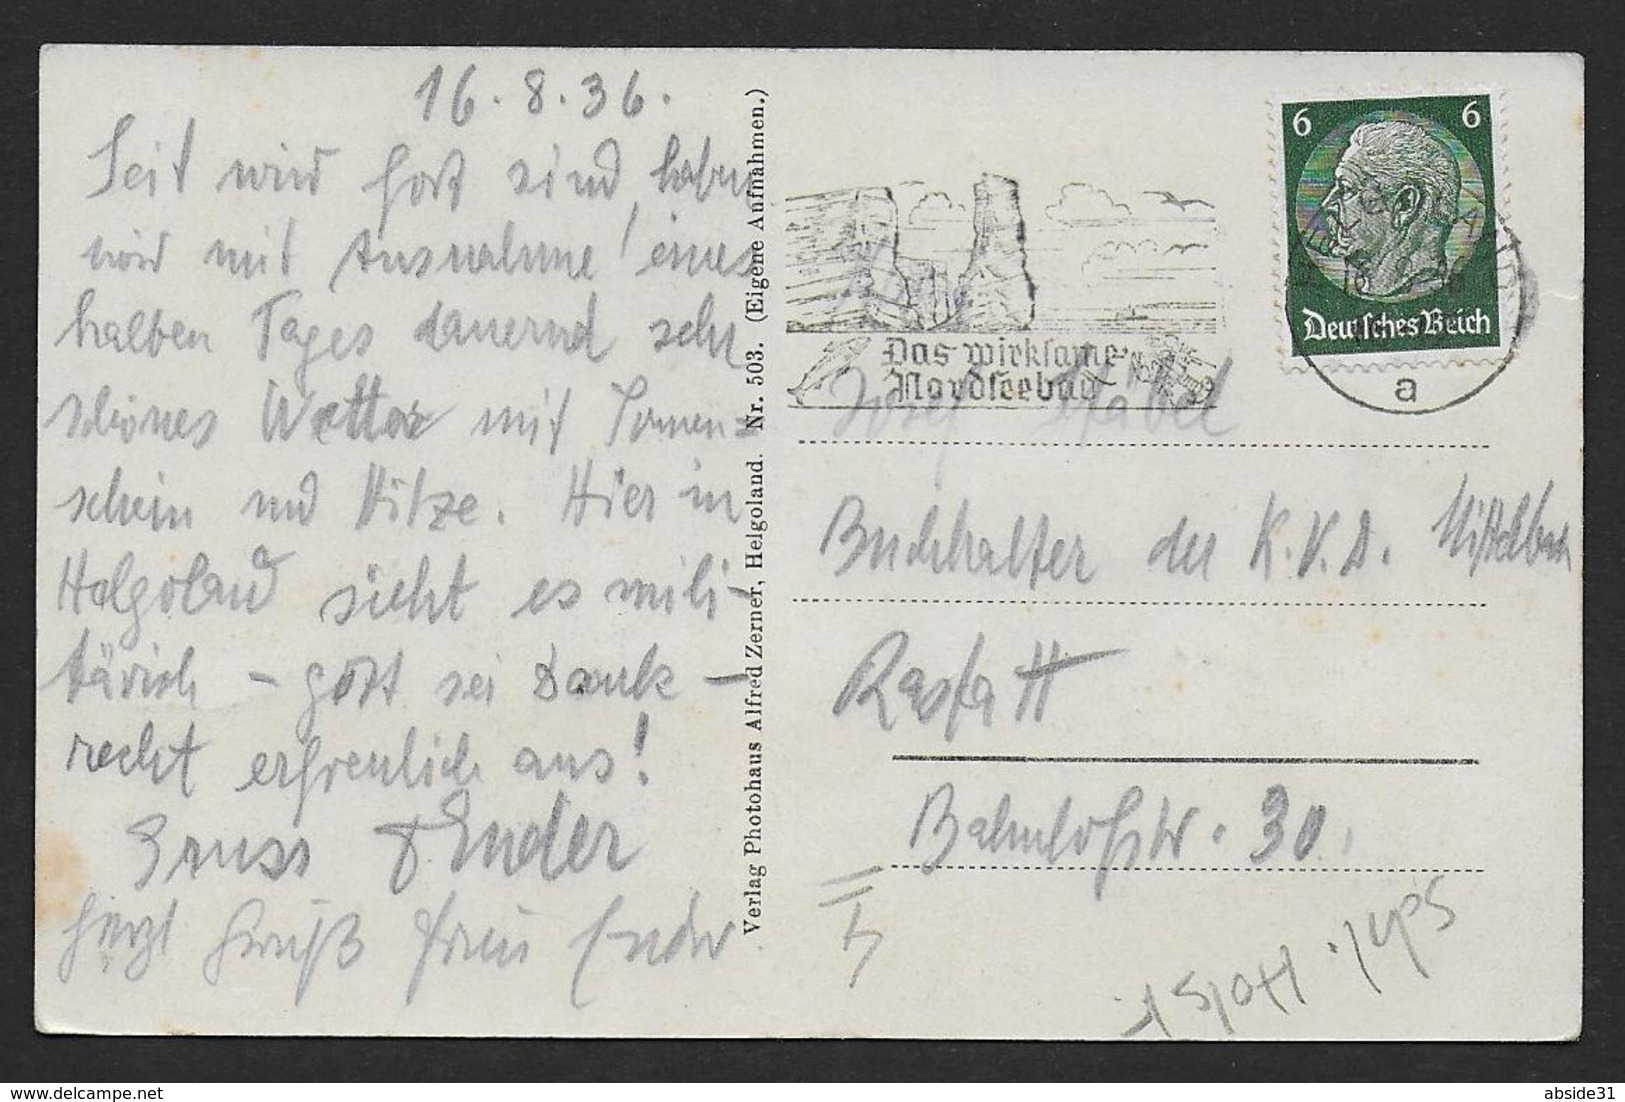 16.8.36.
Seit wir fort sind, haben
wir mit Ausnahme eines
halben Tages dauernd sehr
schönes Wetter mit Sonnen=
schein und Hitze. Hier in
Helgoland sieht es mili-
tärisch - gott sei Dank -
recht erfreulich aus!
Gruss Ender
herzl Gruß Frau Ender
Verlag Photohaus Alfred Zerner, Helgoland. Nr. 503. (Eigene Aufnahmen.)
Das wirksame
Nordseebad
6 6
Deutsches Reich
HELGOLAND
a
Josef
Buchhalter der K.V.D.
Rastatt
Bahnhofstr. 30.
abside31